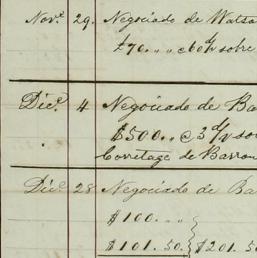 Nov.e 29. Negociado de Wats
£70.,, c 60 d/v sobre
Dic.e 4 Negociado de Ba
$500.,, c 3 d/v so
Corretage de Barro
Dic.e 28 Negociado de Ba
$100.,,
$101.50 } $201.5